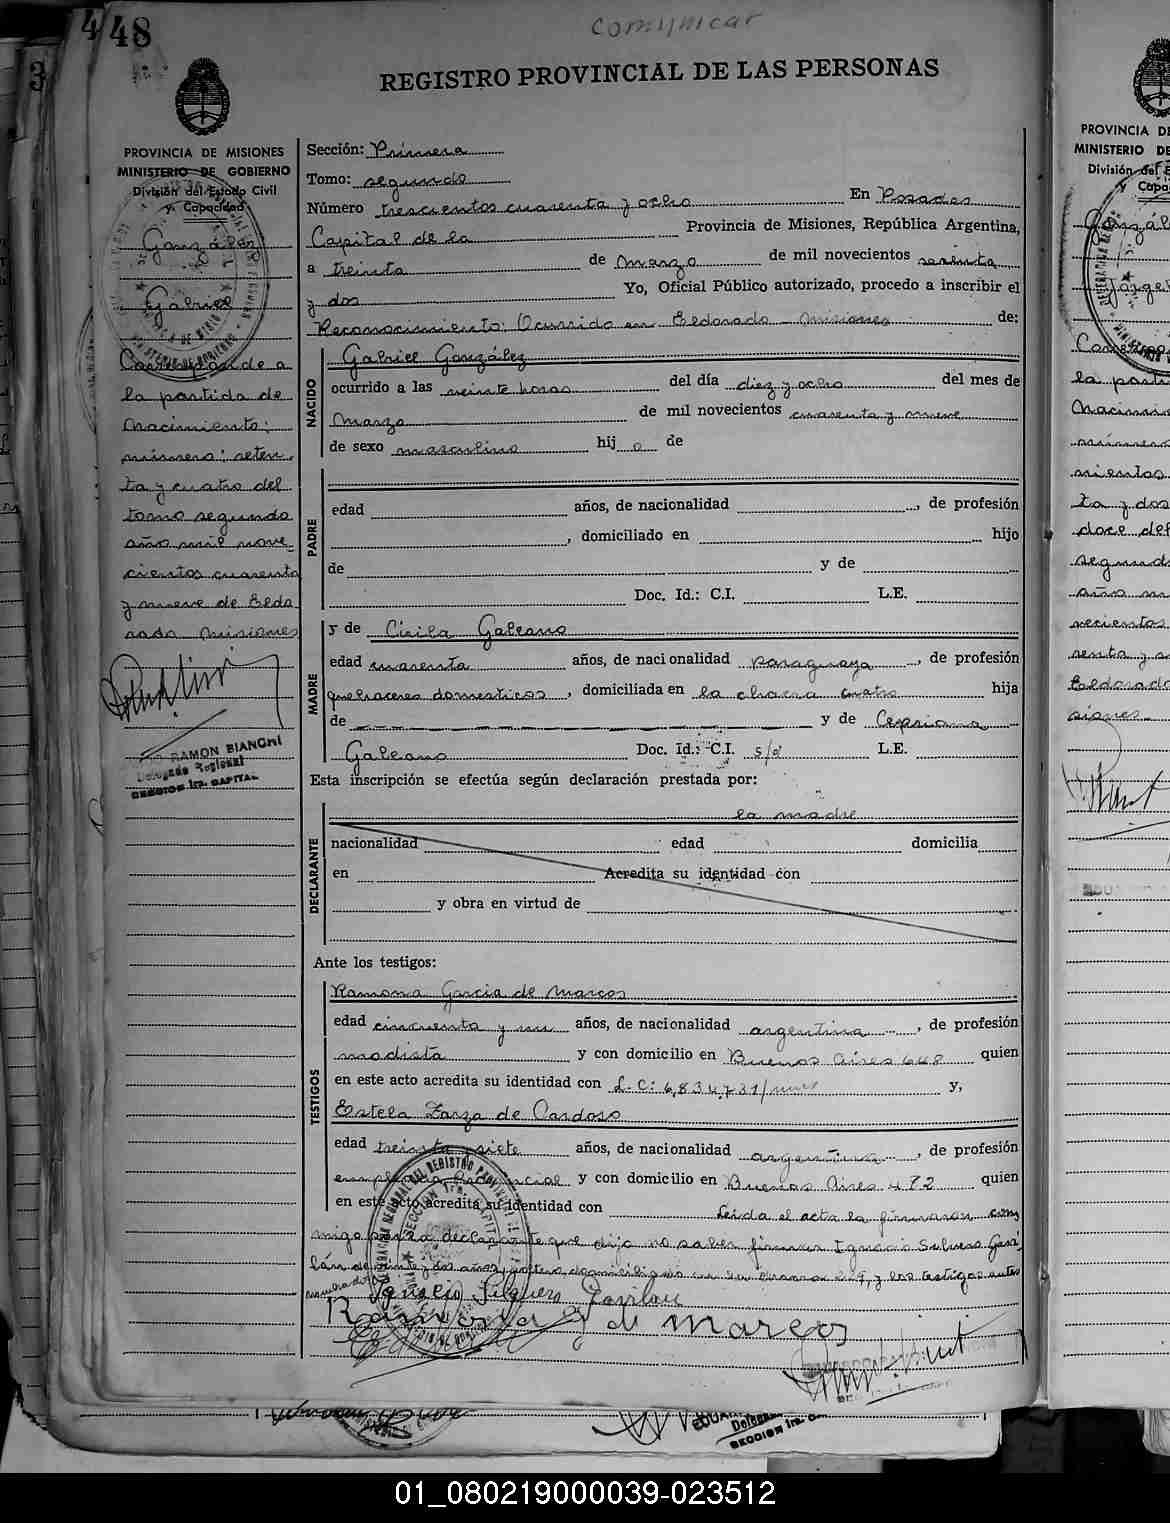 comunicar
48
REGISTRO PROVINCIAL DE LAS PERSONAS
PROVINCIA DE MISIONES
MINISTERIO DE GOBIERNO
División del Estado Civil
y Capacidad
González
Gabriel
Corresponde a
la partida de
nacimiento:
número: seten-
ta y cuatro del
tomo segundo
año mil nove-
cientos cuarenta
y nueve de Eldo
rado Misiones
RAMON BIANCHI
Delegado Regional
SECCION 1ra. CAPITAL
Sección: Primera
Tomo: segundo
Número trescientos cuarenta y ocho En Posadas
Capital de la Provincia de Misiones, República Argentina,
a treinta de marzo de mil novecientos setenta
y dos Yo, Oficial Público autorizado, procedo a inscribir el
Reconocimiento: Ocurrido en Eldorado - Misiones de:
NACIDO
Gabriel González
ocurrido a las veinte horas del día diez y ocho del mes de
marzo de mil novecientos cuarenta y nueve
de sexo masculino hij o de
PADRE
edad años, de nacionalidad , de profesión
, domiciliado en hijo
de y de
Doc. Id.: C.I. L.E.
MADRE
y de Cirila Galeano
edad cuarenta años, de nacionalidad paraguaya , de profesión
quehaceres domesticos , domiciliada en la chacra cuatro hija
de y de Cepriana
Galeano Doc. Id.: C.I. s/d L.E.
Esta inscripción se efectúa según declaración prestada por:
DECLARANTE
la madre
nacionalidad edad domicilia
en Acredita su identidad con
y obra en virtud de
Ante los testigos:
TESTIGOS
Ramona Garcia de Marcos
edad cincuenta y un años, de nacionalidad argentina , de profesión
modista y con domicilio en Buenos Aires 648 quien
en este acto acredita su identidad con L.C: 6,834,731 y,
Estela Zarza de Cardoso
edad treinta y siete años, de nacionalidad argentina , de profesión
y con domicilio en Buenos Aires 472 quien
en este acto acredita su identidad con Leida el acta la firmaron con
migo la declarante que dijo no saber firmar Ignacio
de veinte y dos años, soltero, domiciliado en la y los testigos antes
Ramona G de Marcos
PROVINCIA DE
MINISTERIO DE
División del E
y Capa
Delega
SECCION 1ra.
01_080219000039-023512